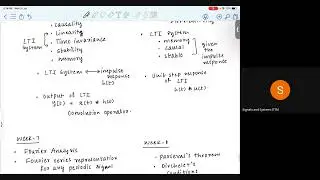 • causality
LTI System
• Linearity
• Time invariance
• stability
• memory
• LTI System ⟷ impulse response
h(t)
• Output of LTI
y(t) = x(t) * h(t)
Convolution operation
• LTI System
• memory
• causal
• stable
given the impulse response
• Unit step response of LTI
h(t) * u(t)
WEEK-7
• Fourier Analysis
• Fourier series representation for any periodic signal
WEEK-8
• Parseval's theorem
• Dirichlet's Conditions
S
Signals and Systems IITM